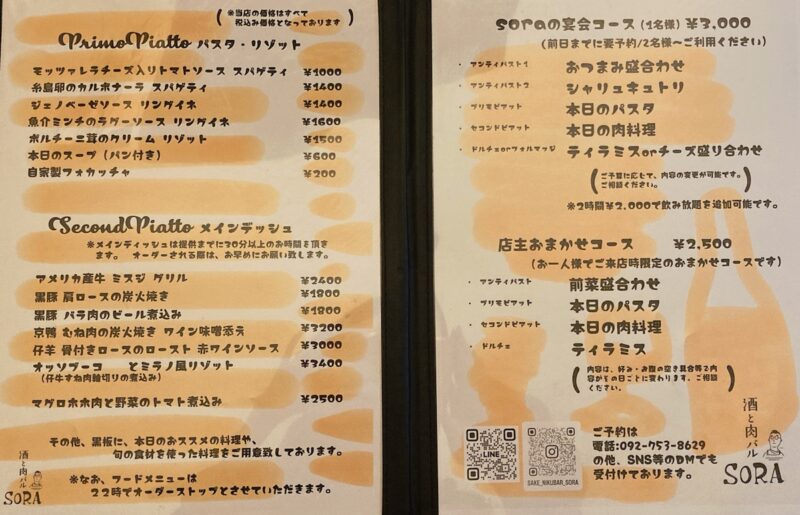 (※当店の価格はすべて
税込み価格となっております)
PrimoPiatto パスタ・リゾット
モッツァレラチーズ入りトマトソース スパゲティ ¥1000
糸島卵のカルボナーラ スパゲティ ¥1400
ジェノベーゼソース リングイネ ¥1400
魚介ミンチのラグーソース リングイネ ¥1600
ポルチーニ茸のクリーム リゾット ¥1500
本日のスープ(パン付き) ¥600
自家製フォカッチャ ¥200
SecondPiatto メインデッシュ
※メインディッシュは提供までに30分以上のお時間を頂き
ます。 オーダーされる際は、お早めにお願い致します。
アメリカ産牛 ミスジ グリル ¥2400
黒豚 肩ロースの炭火焼き ¥1800
黒豚 バラ肉のビール煮込み ¥1800
京鴨 むね肉の炭火焼き ワイン味噌添え ¥3200
仔羊 骨付きロースのロースト 赤ワインソース ¥3000
オッソブーコ とミラノ風リゾット ¥3400
(仔牛すね肉輪切りの煮込み)
マグロホホ肉と野菜のトマト煮込み ¥2500
その他、黒板に、本日のおススメの料理や、
旬の食材を使った料理をご用意致しております。
※なお、フードメニューは
22時でオーダーストップとさせていただきます。
酒と肉バル
SORA
soraの宴会コース(1名様)¥3,000
(前日までに要予約/2名様~ご利用ください)
・ アンティパスト1 おつまみ盛合わせ
・ アンティパスト2 シャリュキュトリ
・ プリモピアット 本日のパスタ
・ セコンドピアット 本日の肉料理
・ ドルチェorフォルマッジ ティラミスorチーズ盛り合わせ
(ご予算に応じて、内容の変更が可能です。
ご相談ください。)
※2時間¥2,000で飲み放題を追加可能です。
店主おまかせコース ¥2,500
(お一人様でご来店時限定のおまかせコースです)
・ アンティパスト 前菜盛合わせ
・ プリモピアット 本日のパスタ
・ セコンドピアット 本日の肉料理
・ ドルチェ ティラミス
(内容は、好み・お腹の空き具合等で内
容がその日ごとに変わります。ご相談
ください。)
LINE
SAKE_NIKUBAR_SORA
ご予約は
電話:092-753-8629
の他、SNS等のDMでも
受付けております。
酒と肉バル
SORA